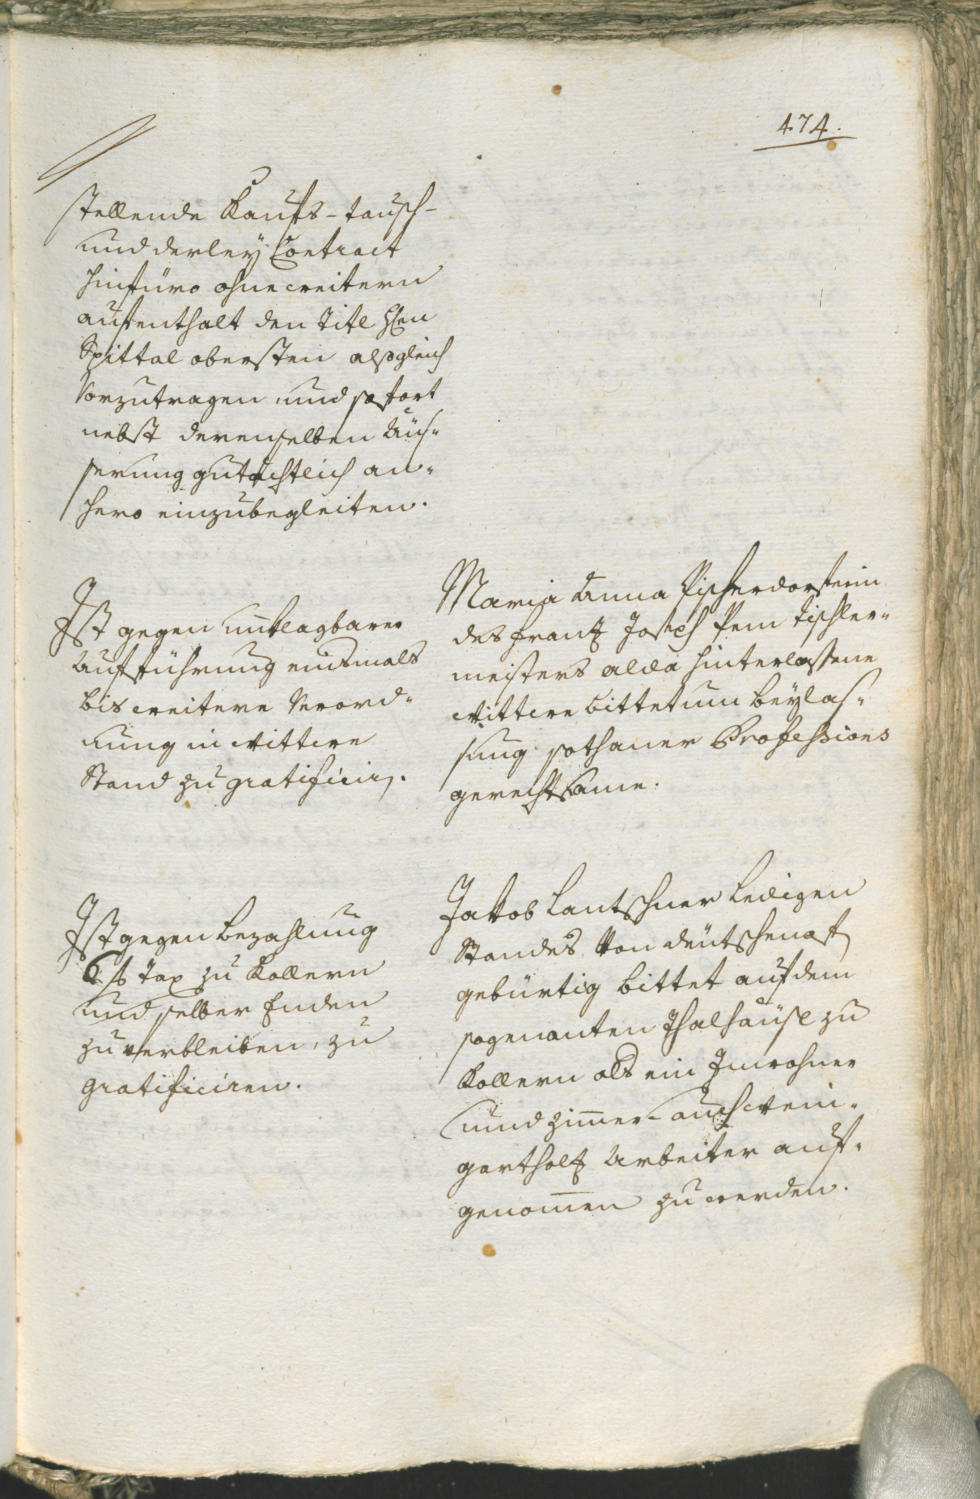 474.
stellende Kaufs-tausch-
und derleÿ Contract
hinfüro ohne weitern
aufenthalt den Titl HEn
Spittal obersten alsogleich
Vorzutragen und sofort
nebst derenselben Aüs-
serung gutächtlich an-
hero einzubegleiten.
Ist gegen unklagbarer
Aufführung eins mals
bis weitere Verord-
nung in Wittwe
Stand zu gratificirn.
Maria Anna Pischerdorsterin
des Frantz Joseph Pem Tischler-
meisters alda hinterlassene
Wittwe bittet um beÿlas-
sung sothaner Professions
gerechtsame.
Ist gegen bezahlung
6 f Tax zu Kollern
und selber Enden
zu verbleiben, zu
gratificiren.
Jakob Lantschner Ledigen
Standes Von deütschenof
gebürtig bittet auf dem
sogenanten Thalhäusl zu
Kollern als ein Inwohner
und Zimmer- auch Wein-
gartholtz Arbeiter auf-
genommen zu werden.